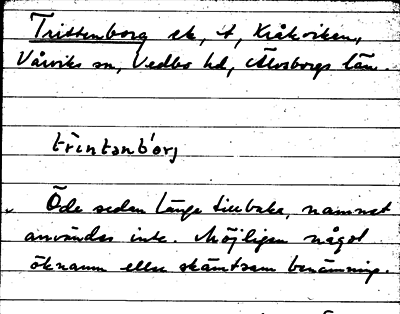 Trittenborg sk, t, Kråkviken,
Vårviks sn, Vedbo hd, Älvsborgs län.
Öde sedan länge tillbaka, namnet
användes inte. Möjligen något
öknamn eller skämtsam benämning.